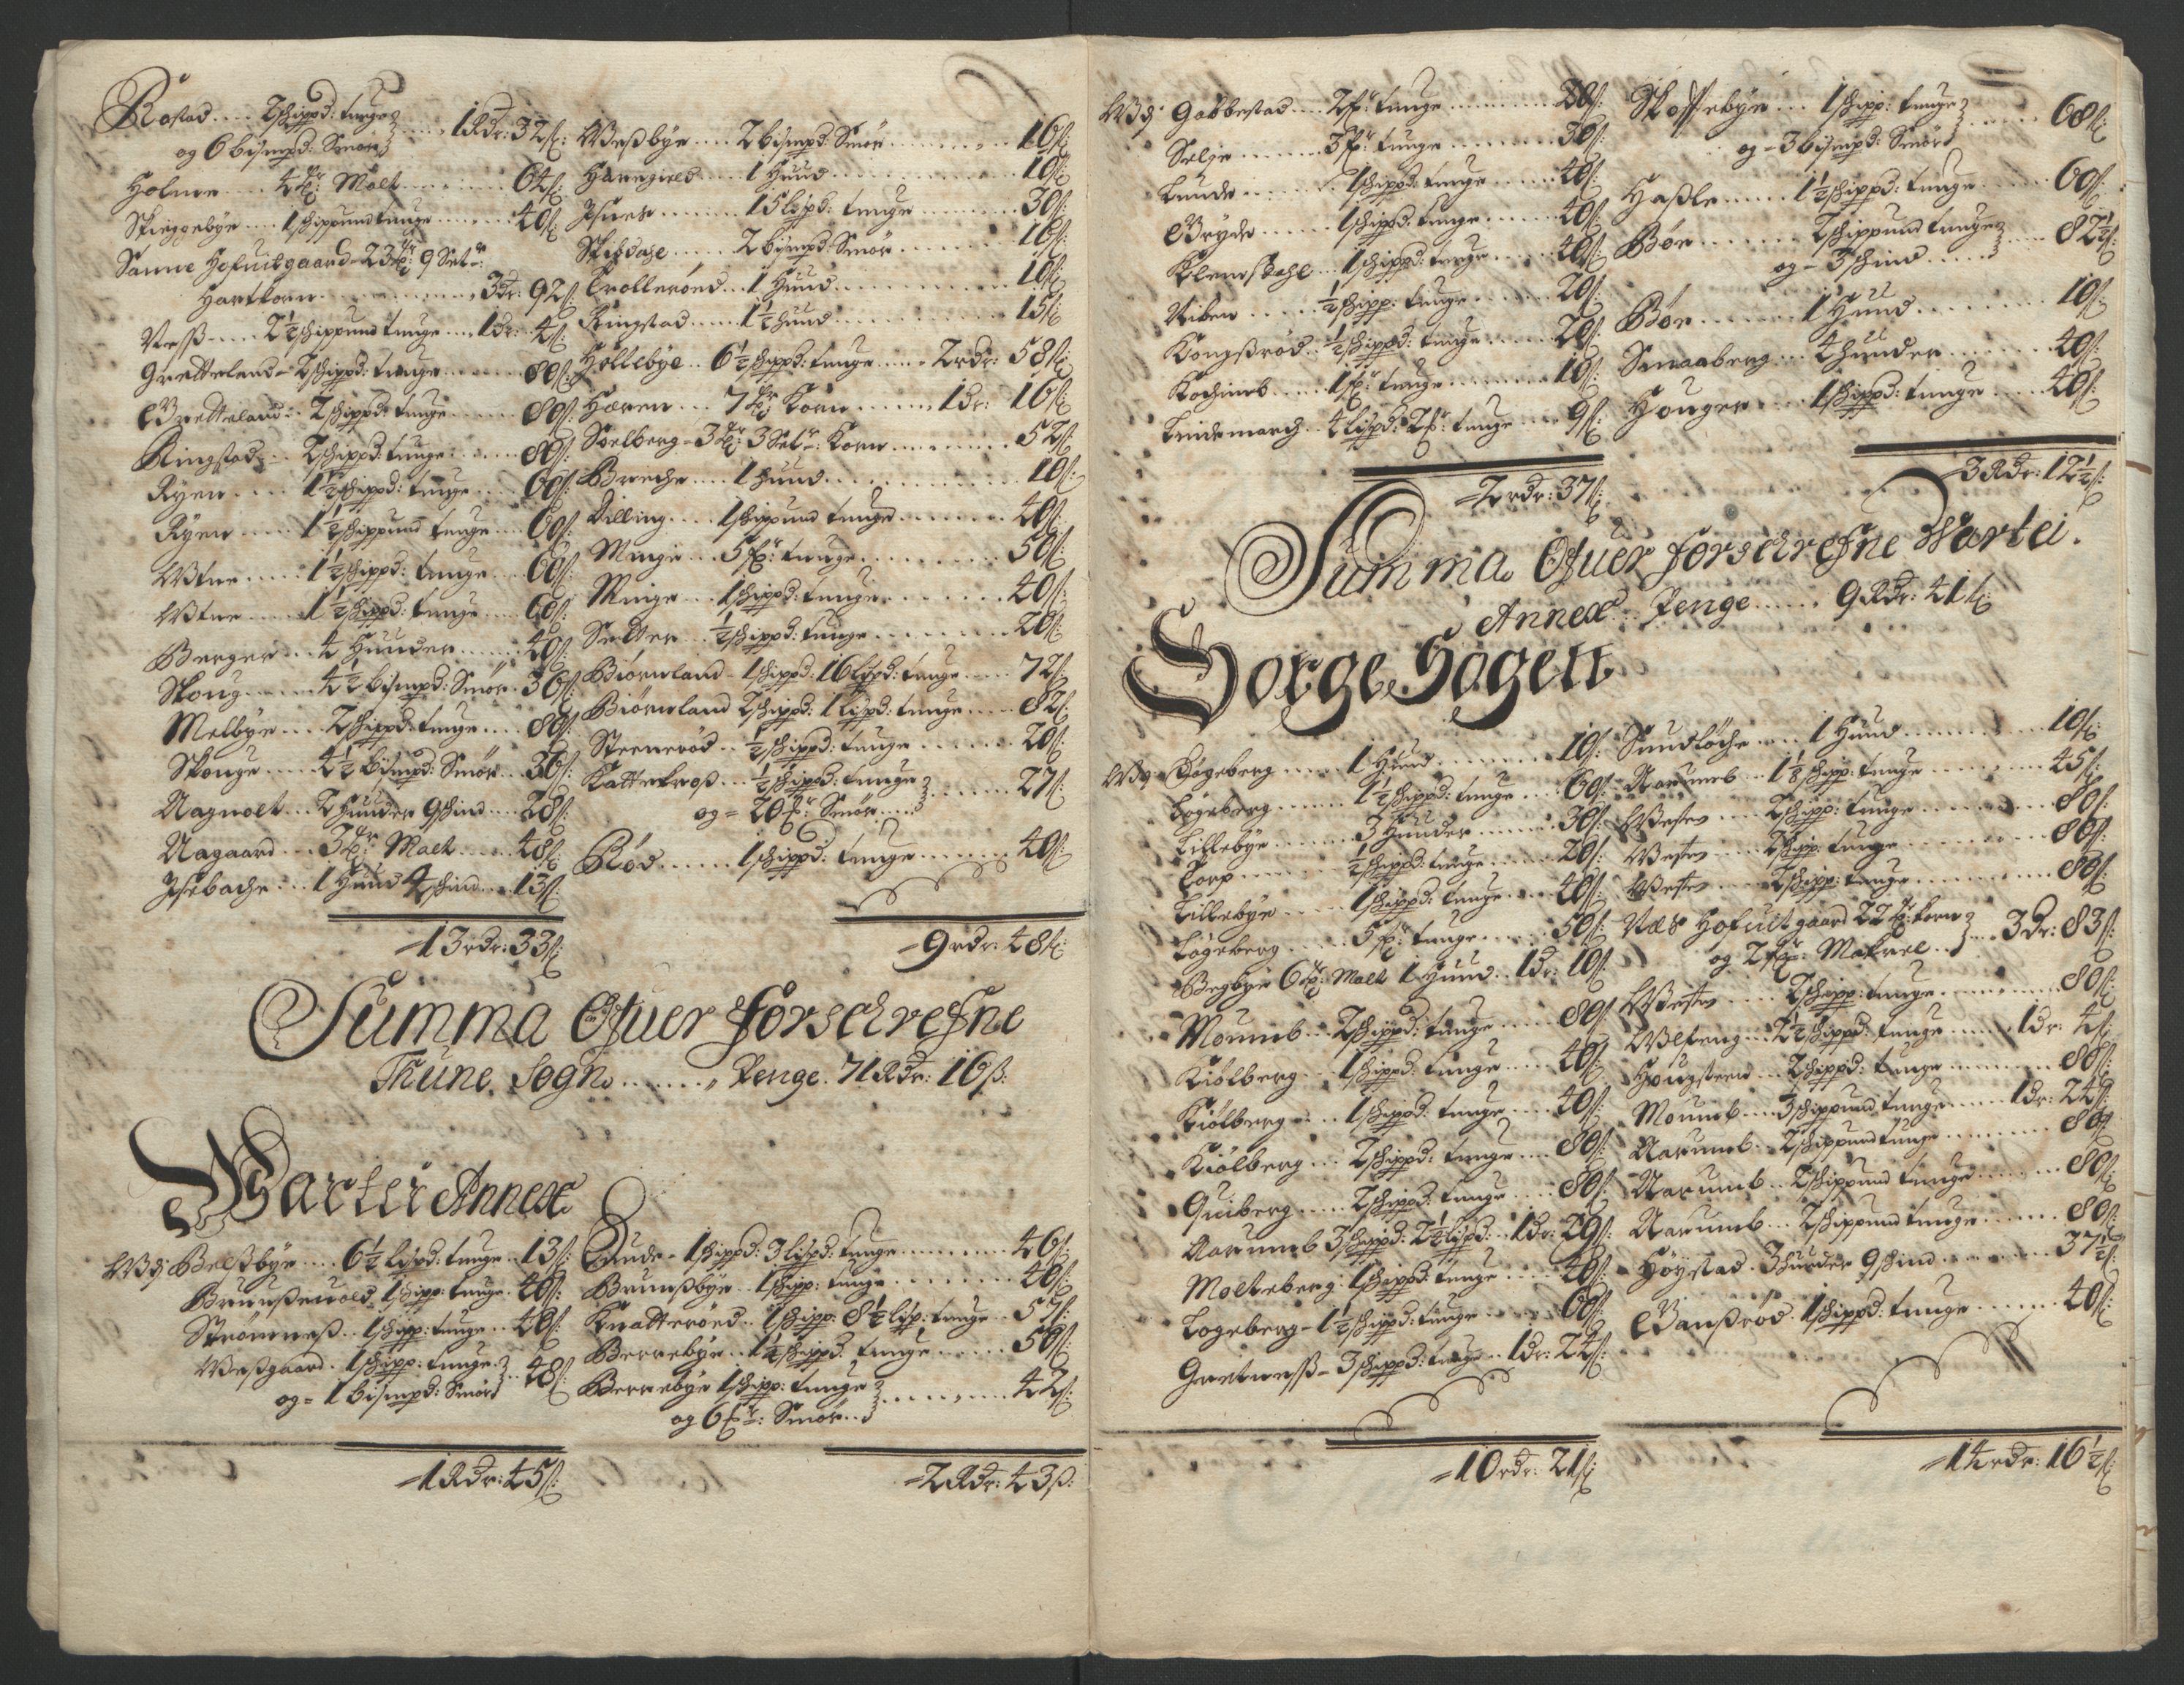 Rostad .... 2 schippd: tunge
og 6 bismpd: Smør .... 1 Rdr: 32 ß:
Holme .... 4 tr: Malt .... 64 ß:
Skieggebye .... 1 schippund tunge .... 40 ß:
Sanne Hofuitgaard - 23 tr: 9 Setr:
Hartkorn .... 3 dr: 92 ß:
Ness .... 2½ schippund tunge .... 1 dr: 4 ß:
Gretterland - 2 schippd: tunge .... 80 ß:
Gretterland - 2 schippd: tunge .... 80 ß:
Ringstad .... 2 schippd: tunge .... 80 ß:
Ryen .... 1½ schippd: tunge .... 60 ß:
Ryen .... 1½ schippund tunge .... 60 ß:
Wtne .... 1½ schippd: tunge .... 60 ß:
Wtne .... 1½ schippd: tunge .... 60 ß:
Berger .... 4 Huuder .... 40 ß:
Skoug .... 4½ bismpd: Smør .. 36 ß:
Melbye .... 2 schippd: tunge .... 80 ß:
Skouge .... 4½ bismpd: Smør .. 36 ß:
Nagnolt .. 2 Huuder 9 schind .... 28 ß:
Aagaard .... 3 tr: Malt .... 48 ß:
Isebache .... 1 Huud 4 schind .... 13 ß:
13 rdr: 33 ß:
Wessbye .... 2 bismpd: Smør .... 16 ß:
Haregield .... 1 Huud .... 10 ß:
Isnes .... 15 lispd: tunge .... 30 ß:
Skibdahl .... 2 bismpd: Smør .... 16 ß:
Trollerøed .. 1 Huud .... 10 ß:
Ringstad .... 1½ huud .... 15 ß:
Hollebye .. 6½ schippd: tunge .... 2 rdr: 58 ß:
Haren .... 7 tr: Korn .... 1 dr: 16 ß:
Soelberg - 3 tr: 3 Setr: Korn .... 52 ß:
Breche .... 1 huud .... 10 ß:
Dilling .... 1 schippund tunge .... 40 ß:
Minge .... 5 fr: tunge .... 50 ß:
Minge .... 1 schippd: tunge .... 40 ß:
Setter .. ½ schippd: tunge .... 20 ß:
Biørnland - 1 schippd: 16 lispd: tunge .... 72 ß:
Biørnland 2 schippd: 1 lispd: tunge .... 82 ß:
Steenerød .. ½ schippd: tunge .... 20 ß:
Kattekross .. ½ schippd: tunge
og = 20 fr: Smør .... 27 ß:
Rød .... 1 schippd: tunge .... 40 ß:
9 rdr: 48 ß:
Summa Ofuer forschrefne
Thune Sogn .... Penge. 71 Rdr: 16 ß:
Warter Annex
Wdj Belssbye .... 6½ lispd: tunge .. 13 ß:
Bruussewold 1 schipp: tunge .. 40 ß:
Strømness .. 1 schipp: tunge .. 40 ß:
Wessgaard . 1 schipp: tunge
og = 1 bismpd: Smør .. 48 ß:
1 Rdr: 45 ß:
Lunde - 1 schippd: 3 lispd: tunge .... 46 ß:
Brunssbye .. 1 schipp: tunge .... 40 ß:
Knatterøed .. 1 schipp: 8½ lisp: tunge .. 57 ß:
Berrebye .. 1¼ schippd: tunge .... 50 ß:
Berrebye 1 schipp: tunge
og 6 fr: Smør .... 42 ß:
2 Rdr: 43 ß:
Wdj Gabbestad .... 2 fr: tunge .... 20 ß:
Selje .... 3 fr: tunge .... 30 ß:
Lunde .... 1 schippd: tunge .... 40 ß:
Gryde .... 1 schippd: tunge .... 40 ß:
Klemssdahl .. 1 schippd: tunge .... 40 ß:
Viben .... ½ schipp: tunge .... 20 ß:
Kongssrød .. ½ schippd: tunge .... 20 ß:
Kochimb .... 1 fr: tunge .... 10 ß:
Lindemarch .. 4 lispd: 2 fr: tunge .... 9 ß:
2 rdr: 37 ß:
Skoffebye .... 1 schipp: tunge
og - 3 bismpd: Smør .... 68 ß:
Hassle .... 1½ schippd: tunge .... 60 ß:
Bør .... 2 schippund tunge
og - 3 schind .... 82½ ß:
Bør .... 1 Huud .... 10 ß:
Smaaberg .... 4 huuder .... 40 ß:
Houger .... 1 schippd: tunge .... 40 ß:
3 Rdr: 12½ ß:
Summa Ofuer forschrefne Wartei.
Annex .. Penge .... 9 Rdr: 41 ß:
Borge Sogett
Wdj Løgeberg .... 1 Huud .... 10 ß:
Løgeberg .... 1½ schippd: tunge .... 60 ß:
Lillebye .... 3 Huuder .... 30 ß:
Torp .... ½ schippd: tunge .... 20 ß:
Lillebye .... 1 schippd: tunge .... 40 ß:
Løgeberg .... 5 fr: tunge .... 50 ß:
Begbye 6 tr: Malt 1 Huud .. 1 dr: 10 ß:
Moumb .. 2 schippd: tunge .... 80 ß:
Kiølberg .. 1 schippd: tunge .... 40 ß:
Kiølberg .... 1 schippd: tunge .... 40 ß:
Kiølberg .... 2 schippd: tunge .... 80 ß:
Quiberg .... 2 schippd: tunge .... 80 ß:
Aarumb 3 schippd: 2½ lispd: .. 1 dr: 29 ß:
Molteberg: 1 schippd: tunge .... 40 ß:
Logeberg - 1½ schippd: tunge .... 60 ß:
Greetness - 3 schippd: tunge .. 1 dr: 24 ß:
10 rdr: 21 ß:
Sundløche .... 1 Huud .... 10 ß:
Aarumb .. 1⅛ schipp: tunge .... 45 ß:
Westen .... 2 schipp: tunge .... 80 ß:
Westen .... 2 schipp: tunge .... 80 ß:
Westen .... 2 schipp: tunge .... 80 ß:
Næs Hofuitgaard 22 tr: korn
og 2 tr: Makrel .... 3 dr: 83 ß:
Westen .... 2 schipp: tunge .... 80 ß:
Wlfeng .. 2½ schippd: tunge .... 1 dr: 4 ß:
Hougsteen .. 2 schippd: tunge .... 80 ß:
Moumb .... 3 schippund tunge .... 1 dr: 24 ß:
Aarumb .. 2 schippund tunge .... 80 ß:
Aarumb .. 2 schippund tunge .... 80 ß:
Aarumb .. 2 schippund tunge .... 80 ß:
Høystad . 3 huuder 9 schind .... 37½ ß:
Ganssrød . 1 schippd: tunge .... 40 ß:
14 rdr: 16½ ß: